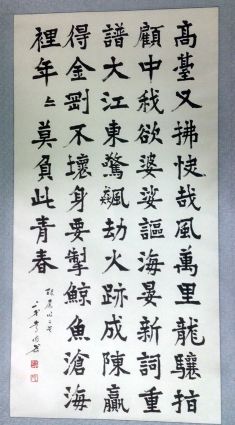 高臺又拂快哉風萬里龍驤指
顧中我欲婆娑謳海晏新詞重
譜大江東驚飆劫火跡成陳贏
得金剛不壞身要掣鯨魚滄海
裡年年莫負此青春